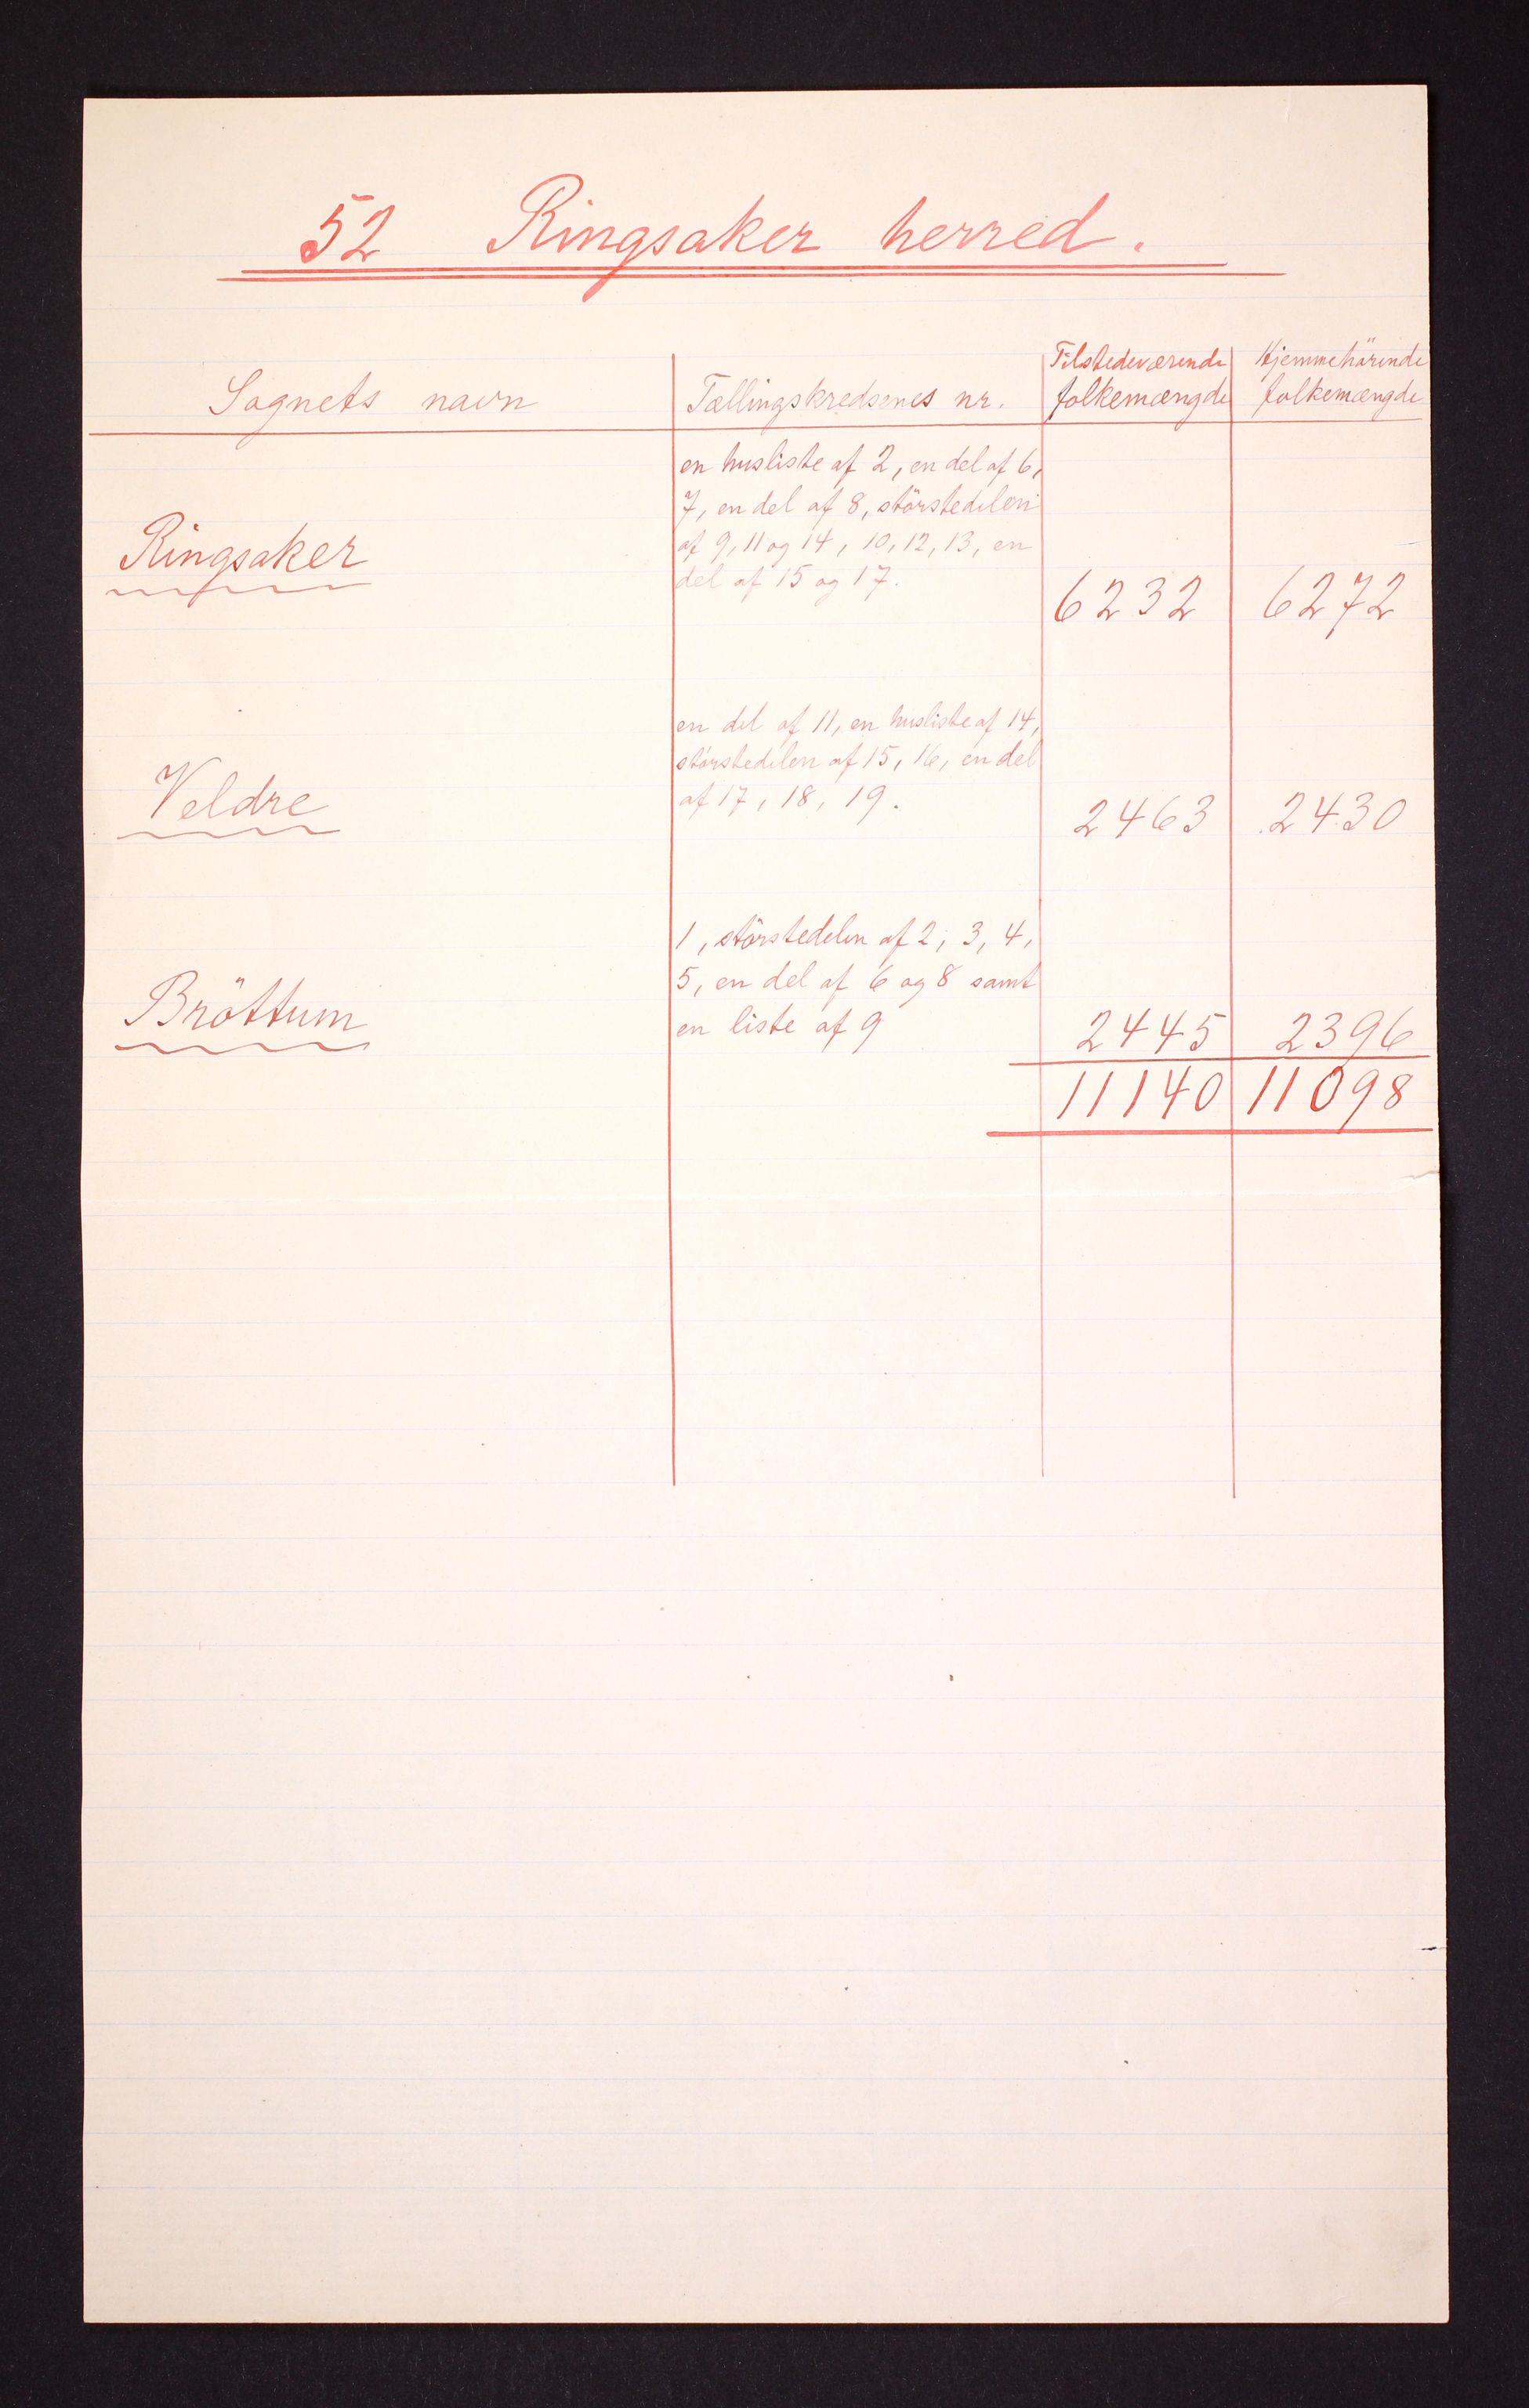 52 Ringsaker herred.
Sognets navn
Tællingskredsenes nr.
Tilstedeværende
folkemængde
Hjemmehörende
folkemængde
Ringsaker
en husliste af 2, en del af 6,
7, en del af 8, störstedelen
af 9, 11 og 14, 10, 12, 13, en
del af 15 og 17.
6232
6272
Veldre
en del af 11, en husliste af 14,
störstedelen af 15, 16, en del
af 17, 18, 19.
2463
2430
Bröttum
1, störstedelen af 2, 3, 4,
5, en del af 6 og 8 samt
en liste af 9
2445
2396
11140
11098